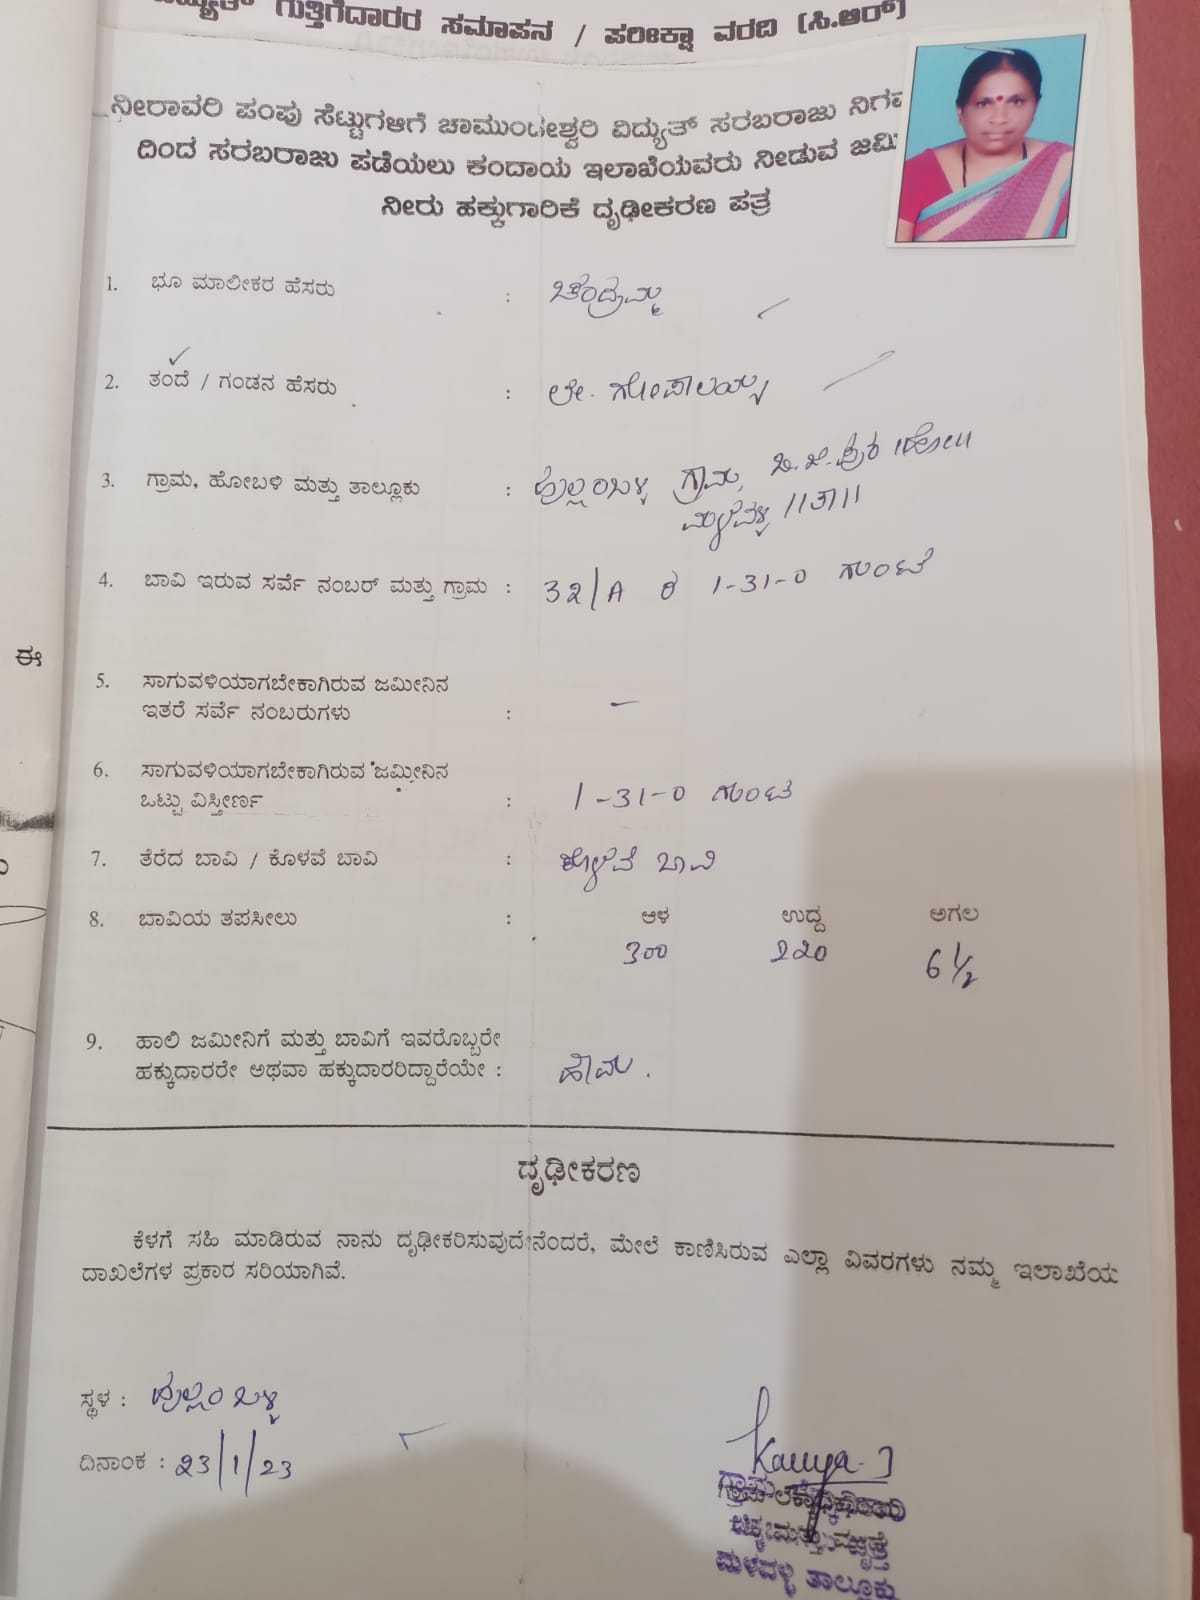 ಗುತ್ತಿಗೆದಾರರ ಸಮಾಪನ / ಪರೀಕ್ಷಾ ವರದಿ (ಸಿ.ಆರ್)
ನೀರಾವರಿ ಪಂಪು ಸೆಟ್ಟುಗಳಿಗೆ ಚಾಮುಂಡೇಶ್ವರಿ ವಿದ್ಯುತ್ ಸರಬರಾಜು
ದಿಂದ ಸರಬರಾಜು ಪಡೆಯಲು ಕಂದಾಯ ಇಲಾಖೆಯವರು ನೀಡುವ
ನೀರು ಹಕ್ಕುಗಾರಿಕೆ ದೃಢೀಕರಣ ಪತ್ರ
1. ಭೂ ಮಾಲೀಕರ ಹೆಸರು : ಚಂದ್ರಮ್ಮ
2. ತಂದೆ / ಗಂಡನ ಹೆಸರು : ಲೇ. ಗೋಪಾಲಯ್ಯ
3. ಗ್ರಾಮ, ಹೋಬಳಿ ಮತ್ತು ತಾಲ್ಲೂಕು : ಪುಲ್ಲಂಬಳ್ಳಿ ಗ್ರಾಮ, ಬಿ.ಜಿ.ಪುರ
ಮಳವಳ್ಳಿ ||ತಾ||
4. ಬಾವಿ ಇರುವ ಸರ್ವೆ ನಂಬರ್ ಮತ್ತು ಗ್ರಾಮ : 32/A ರ 1-31-0 ಗುಂಟೆ
5. ಸಾಗುವಳಿಯಾಗಬೇಕಾಗಿರುವ ಜಮೀನಿನ
ಇತರೆ ಸರ್ವೆ ನಂಬರುಗಳು : –
6. ಸಾಗುವಳಿಯಾಗಬೇಕಾಗಿರುವ ಜಮೀನಿನ
ಒಟ್ಟು ವಿಸ್ತೀರ್ಣ : 1-31-0 ಗುಂಟೆ
7. ತೆರೆದ ಬಾವಿ / ಕೊಳವೆ ಬಾವಿ : ಕೊಳವೆ ಬಾವಿ
8. ಬಾವಿಯ ತಪಸೀಲು : ಆಳ ಉದ್ದ ಅಗಲ
300 220 6½
9. ಹಾಲಿ ಜಮೀನಿಗೆ ಮತ್ತು ಬಾವಿಗೆ ಇವರೊಬ್ಬರೇ
ಹಕ್ಕುದಾರರೇ ಅಥವಾ ಹಕ್ಕುದಾರರಿದ್ದಾರೆಯೇ : ಹೌದು.
ದೃಢೀಕರಣ
ಕೆಳಗೆ ಸಹಿ ಮಾಡಿರುವ ನಾನು ದೃಢೀಕರಿಸುವುದೇನೆಂದರೆ, ಮೇಲೆ ಕಾಣಿಸಿರುವ ಎಲ್ಲಾ ವಿವರಗಳು ನಮ್ಮ ಇಲಾಖೆಯ
ದಾಖಲೆಗಳ ಪ್ರಕಾರ ಸರಿಯಾಗಿವೆ.
ಸ್ಥಳ : ಪುಲ್ಲಂಬಳ್ಳಿ
ದಿನಾಂಕ : 23/1/23
Kavya. J
ಮಳವಳ್ಳಿ ತಾಲ್ಲೂಕು
ಈ